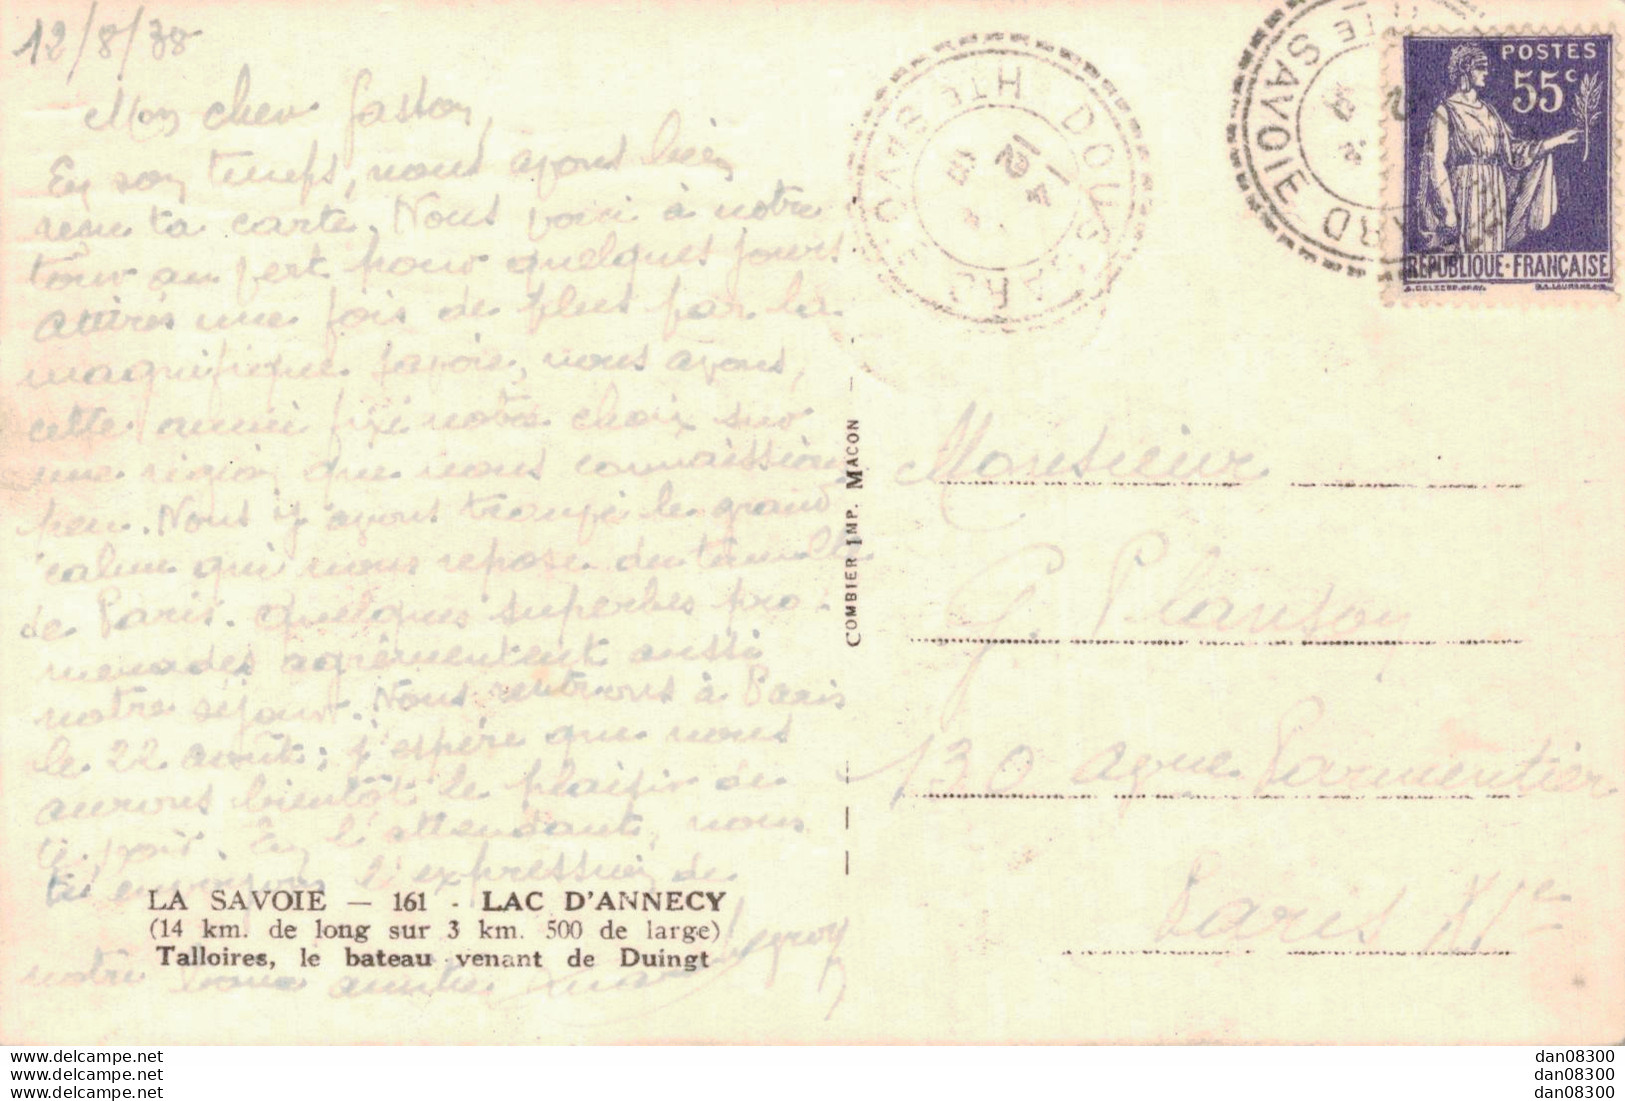 12/8/38
Mon cher Gaston,
En son temps, nous avons bien
reçu ta carte. Nous voici à notre
tour au vert pour quelques jours
attirés une fois de plus par la
magnifique Savoie, nous avons,
cette année fixé notre choix sur
une région que nous connaissions
peu. Nous y avons trouvé le grand
calme qui nous repose du tumulte
de Paris. Quelques superbes pro-
menades agrémentent aussi
notre séjour. Nous rentrons à Paris
le 22 août; j'espère que nous
aurons bientôt le plaisir de
te voir. En l'attendant, nous
t'envoyons l'expression de
notre bonne amitié
LA SAVOIE — 161 - LAC D'ANNECY
(14 km. de long sur 3 km. 500 de large)
Talloires, le bateau venant de Duingt
COMBIER IMP. MACON
DOUSSARD
HTE SAVOIE
14
12
POSTES
55c
REPUBLIQUE·FRANÇAISE
SARD
HTE SAVOIE
Monsieur
G. Planson
130 avenue Parmentier
Paris XIe
dan08300
dan08300
dan08300
dan08300
dan08300
dan08300